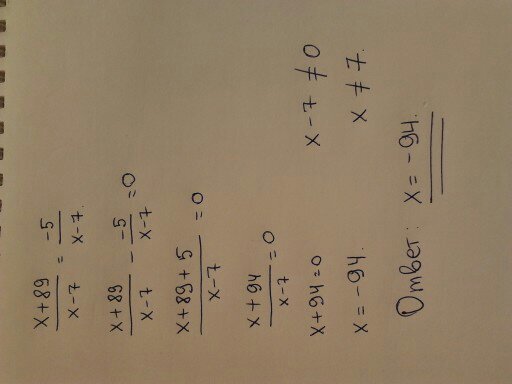 x+89/x-7 = -5/x-7.
x+89/x-7 - -5/x-7 = 0
x+89+5/x-7 = 0
x+94/x-7 = 0
x+94=0 x-7≠0
x=-94. x≠7.
Ответ: x=-94.